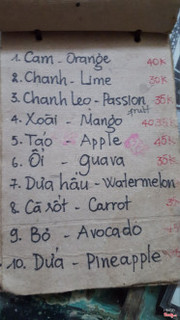 1. Cam - Orange 40K
2. Chanh - Lime 30K
3. Chanh Leo - Passion fruit 35K
4. Xoài - Mango 35K
5. Táo - Apple 45K
6. Ổi - guava 35K
7. Dưa hấu - Watermelon
8. Cà rốt - Carrot 35
9. Bơ - Avocado
10. Dứa - Pineapple